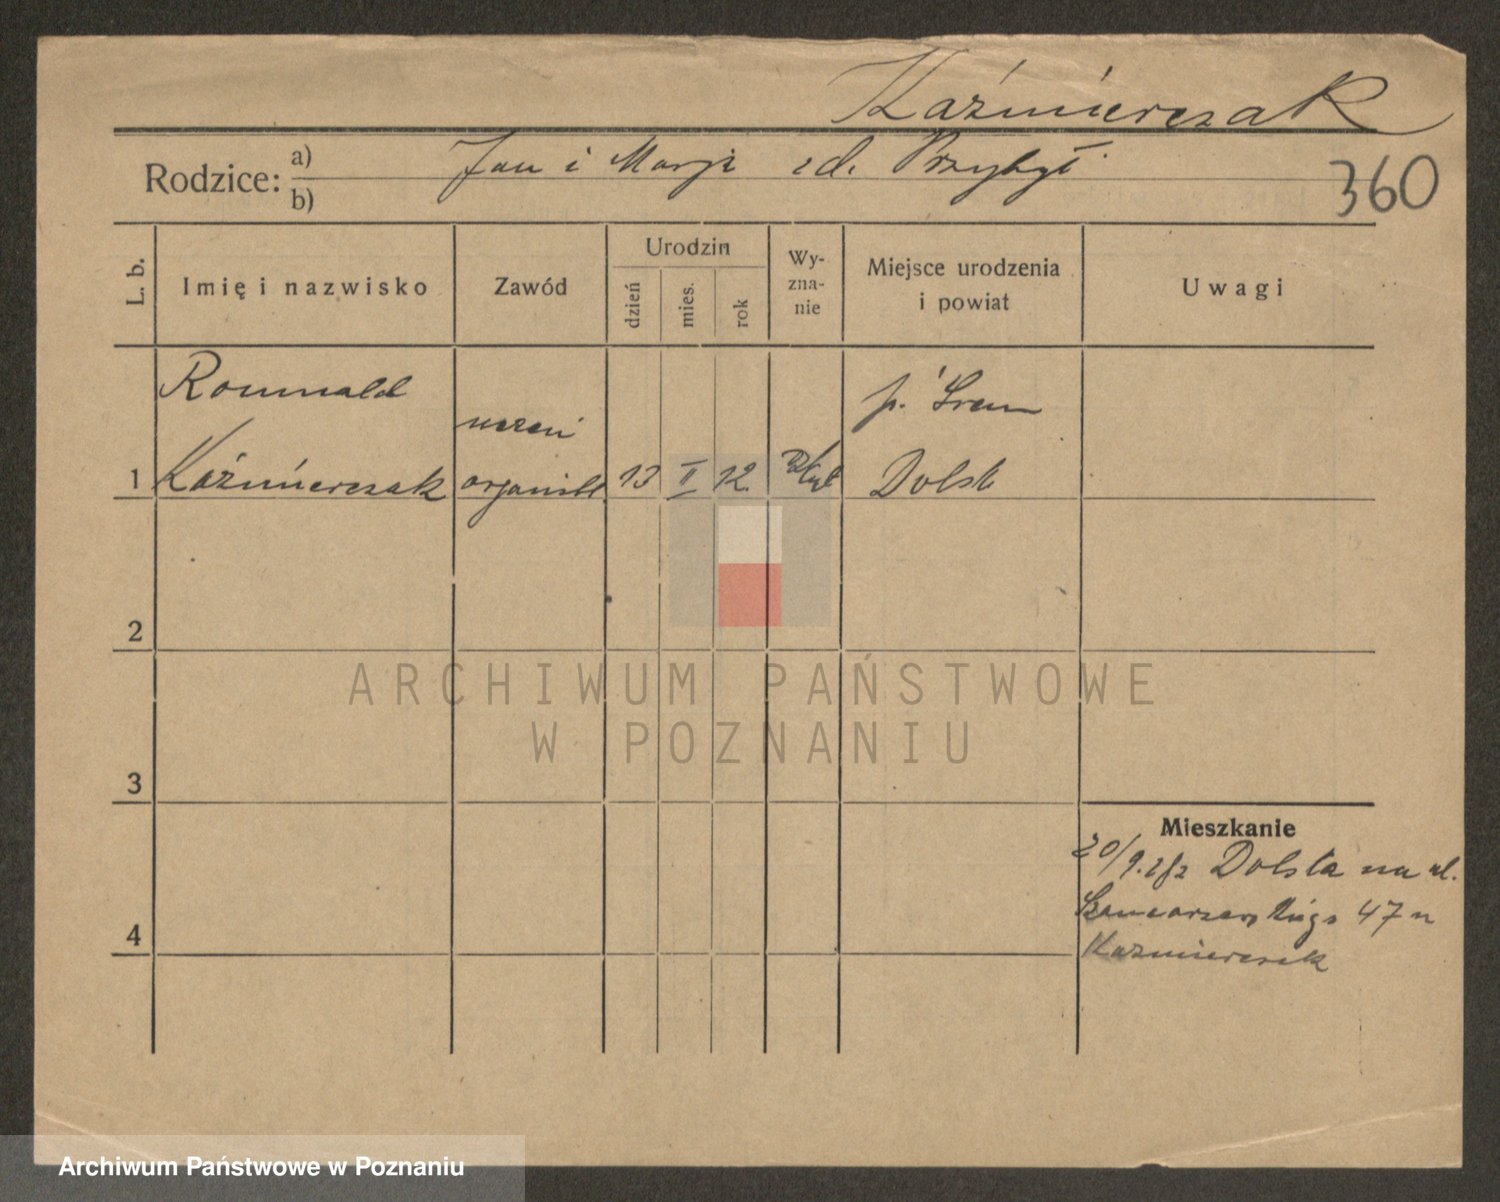 Kaźmierczak
Rodzice: a) Jan i Marji z d. Przybył
b)
360
L. b.
Imię i nazwisko
Zawód
Urodzin
dzień
mies.
rok
Wy-
zna-
nie
Miejsce urodzenia
i powiat
Uwagi
Romuald
Kaźmierczak
uczeń
organist
13 II 12
p. Śrem
Dolsk
1
2
3
4
Mieszkanie
20/9. z Dolska na ul.
47 u
Kaźmierczak
ARCHIWUM PAŃSTWOWE
W POZNANIU
Archiwum Państwowe w Poznaniu